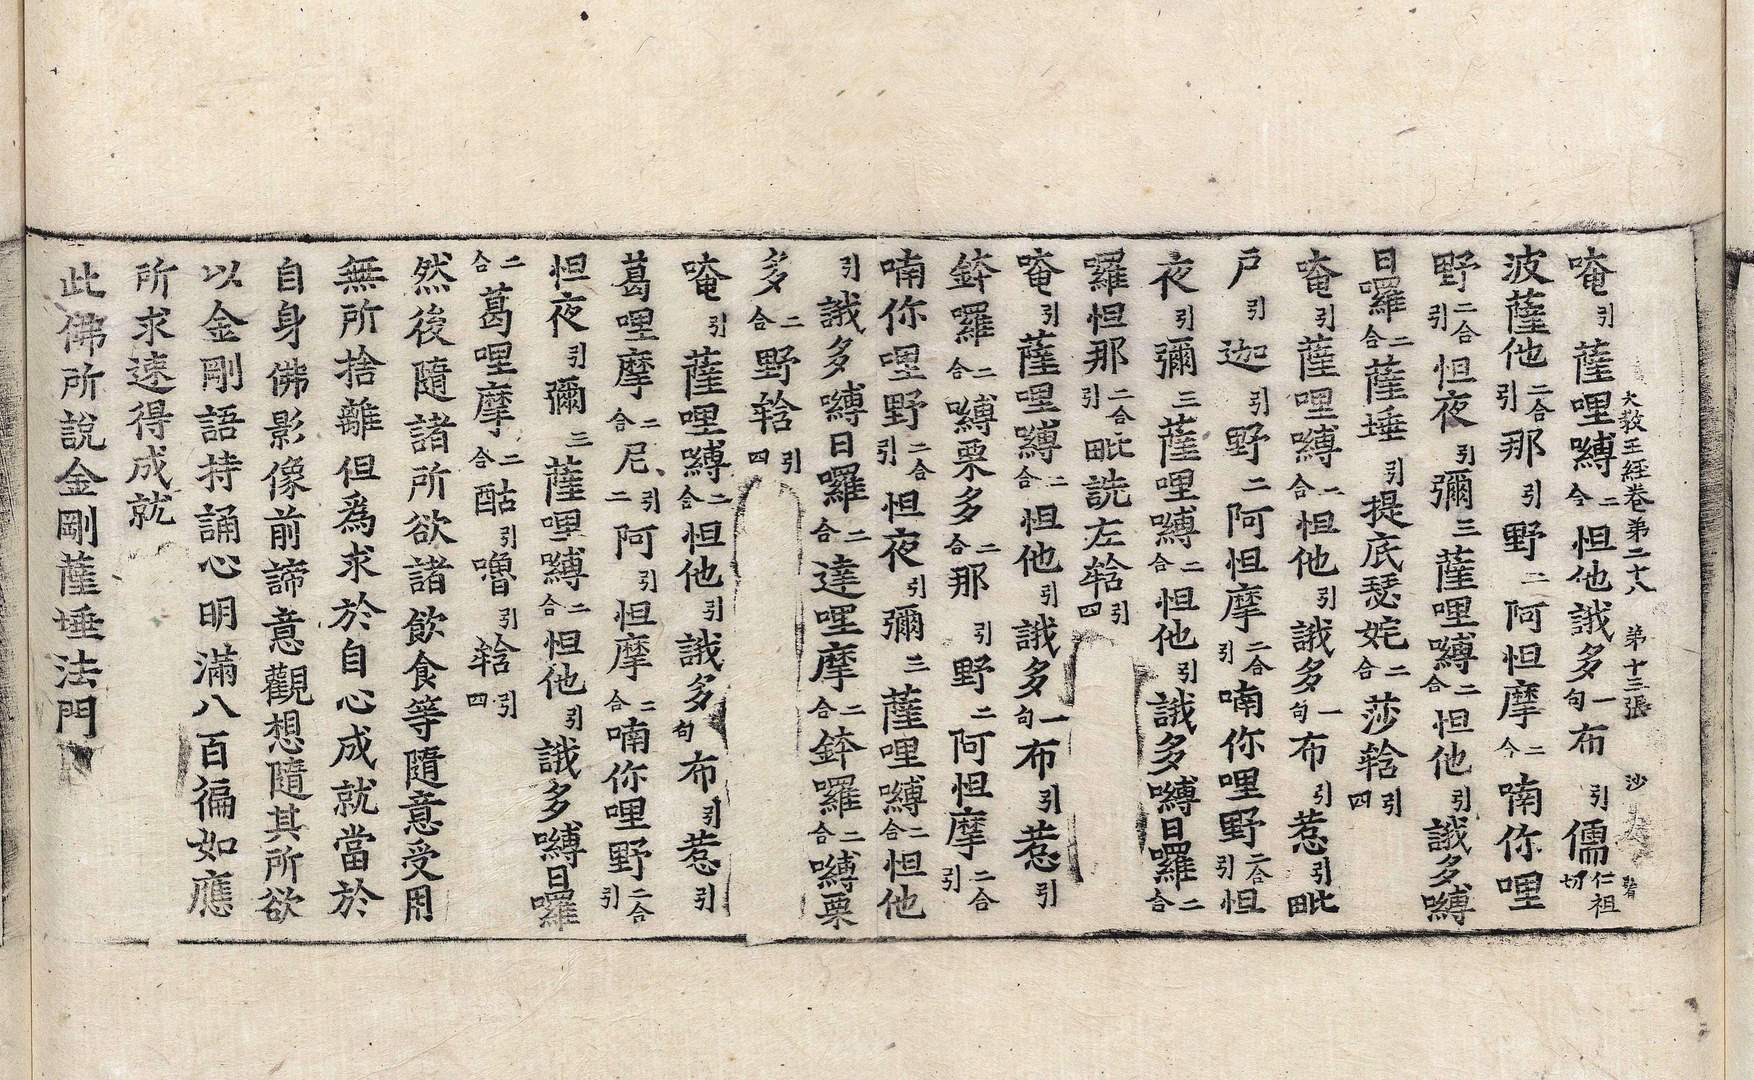 大教王經卷第二十八 第十三張 沙
唵引薩哩嚩二合怛他誐多一句布引儒仁祖切
波薩他二合引那引野二阿怛摩二合喃你哩
野二合引怛夜引彌三薩哩嚩二合怛他引誐多嚩
日囉二合薩埵引提底瑟姹二合莎𤚥引四
唵引薩哩嚩二合怛他引誐多一句布引惹引毗
戶引迦引野二阿怛摩二合引喃你哩野二合引怛
夜引彌三薩哩嚩二合怛他引誐多嚩日囉二合
囉怛那二合引毗詵左𤚥引四
唵引薩哩嚩二合怛他引誐多一句布引惹引
鉢囉二合嚩栗多二合那引野二阿怛摩二合引
喃你哩野二合引怛夜引彌三薩哩嚩二合怛他
引誐多嚩日囉二合達哩摩二合鉢囉二合嚩栗
多二合野𤚥引四
唵引薩哩嚩二合怛他引誐多句布引惹引
葛哩摩二合尼引二阿引怛摩二合喃你哩野二合引
怛夜引彌三薩哩嚩二合怛他引誐多嚩日囉
二合葛哩摩二合酤引嚕引𤚥引四
然後隨諸所欲諸飲食等隨意受用
無所捨離但為求於自心成就當於
自身佛影像前諦意觀想隨其所欲
以金剛語持誦心明滿八百徧如應
所求速得成就
此佛所說金剛薩埵法門